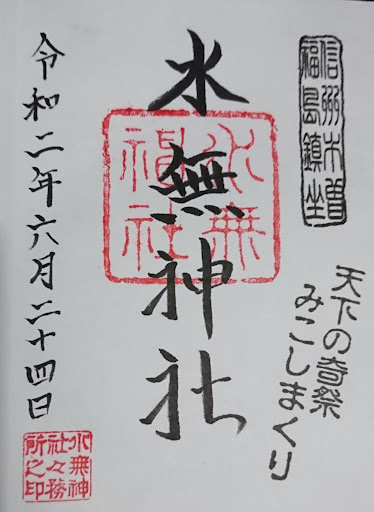 信州木曽
福島鎮坐
天下の奇祭
みこしまくり
水無神社
水無
神社
令和二年六月二十四日
水無神
社々務
所之印